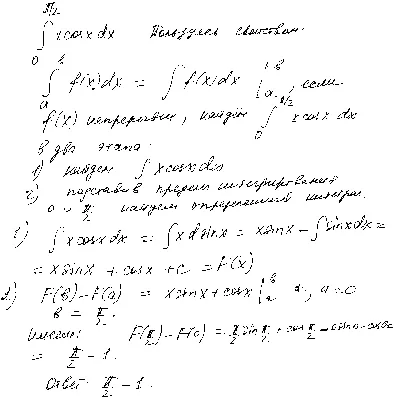 π/2
∫ x cos x dx Пользуясь свойством
0
b
∫ f(x)dx = ∫ f(x)dx |ᵇₐ, если
a
f(x) непрерывна, найдём ∫₀^{π/2} x cos x dx
в два этапа:
1) найдём ∫ x cos x dx
2) подставив пределы интегрирования
0 и π/2 найдём определенный интеграл.
1) ∫ x cos x dx = ∫ x d sin x = x sin x - ∫ sin x dx =
= x sin x + cos x + C = F(x)
2) F(b) - F(a) = x sin x + cos x |ᵇₐ, a = 0
b = π/2.
Имеем: F(π/2) - F(0) = π/2 sin π/2 + cos π/2 - 0 sin 0 - cos 0
= π/2 - 1.
Ответ: π/2 - 1.